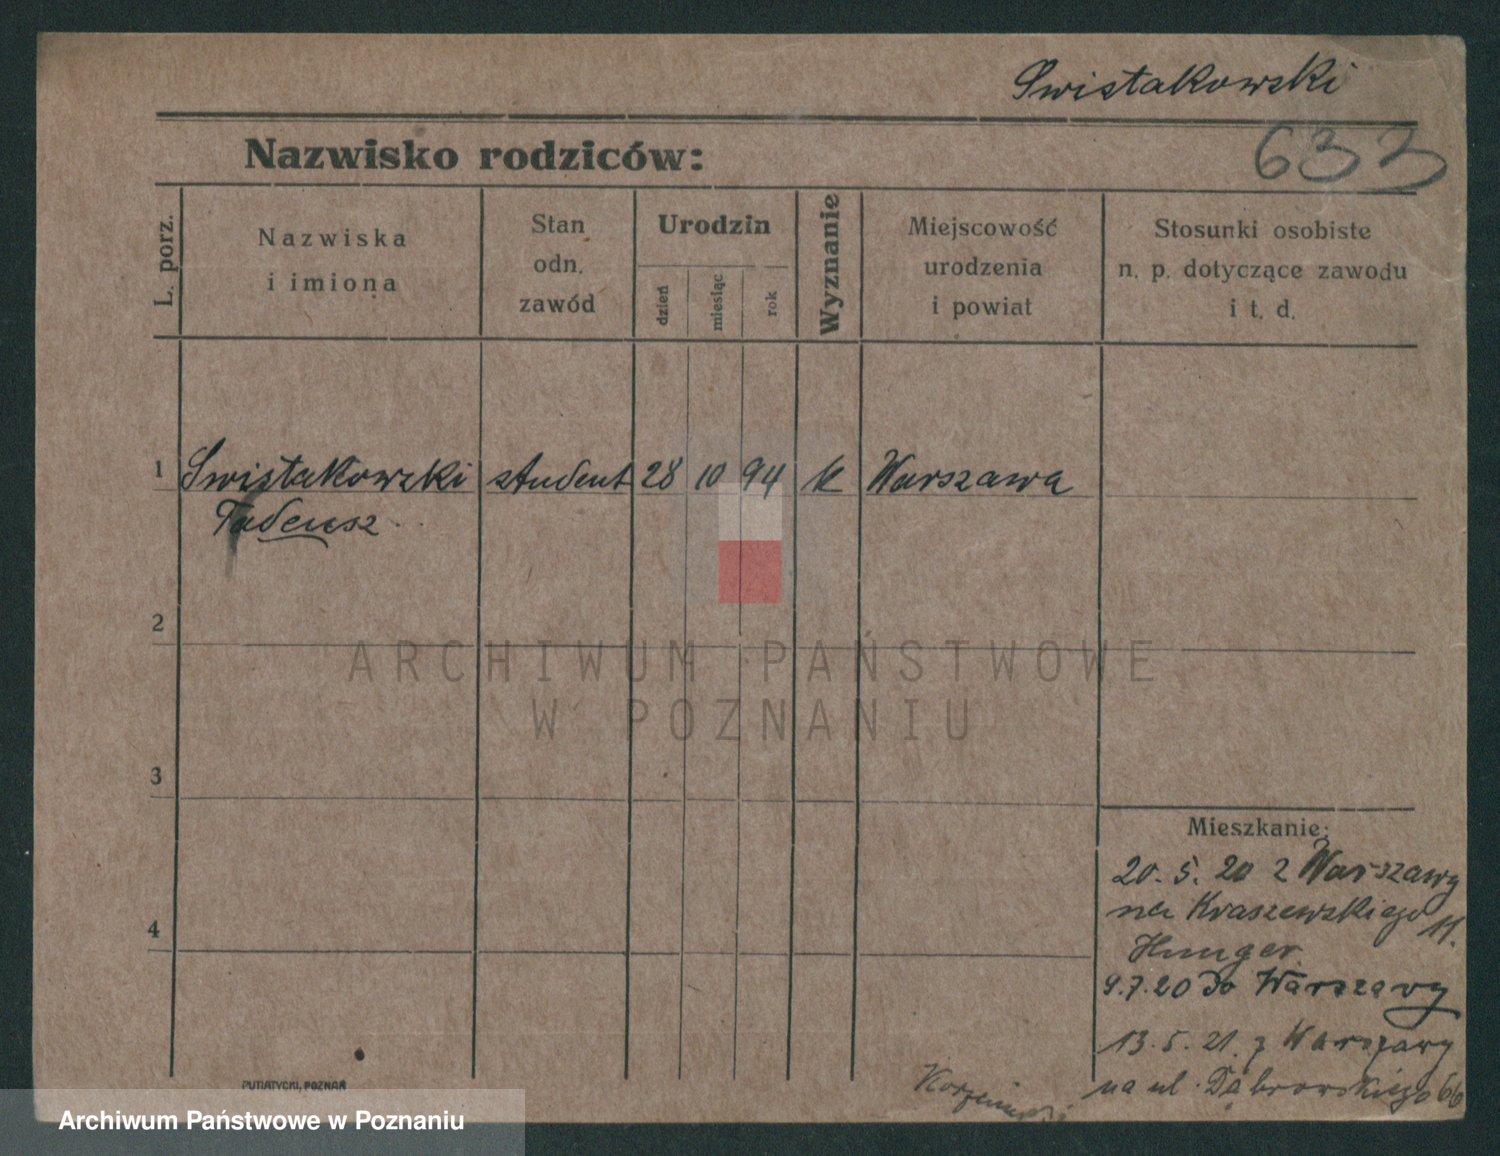 Swistakowski
633
Nazwisko rodziców:
L. porz.
Nazwiska
i imiona
Stan
odn.
zawód
Urodzin
dzień
miesiąc
rok
Wyznanie
Miejscowość
urodzenia
i powiat
Stosunki osobiste
n. p. dotyczące zawodu
i t. d.
1 Swistakowski student 28 10 94 k Warszawa
Tadeusz
2
3
4
Mieszkanie:
20. 5. 20 z Warszawy
na Kraszewskiego 11.
Hunger.
9.7.20 do Warszawy
13. 5. 21. z Warszawy
na ul. Dąbrowskiego 66
PUTIATYCKI, POZNAŃ
ARCHIWUM PAŃSTWOWE
W POZNANIU
Archiwum Państwowe w Poznaniu